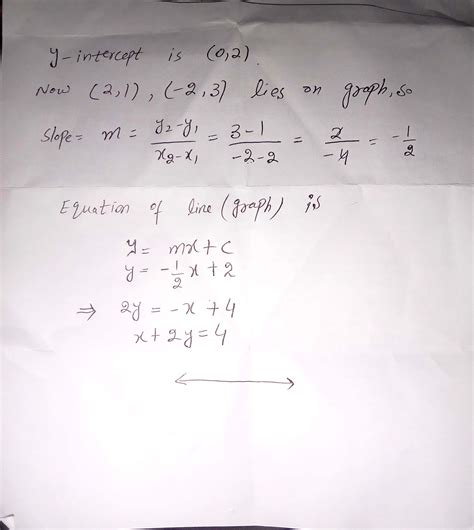 y-intercept is (0,2).
Now (2,1), (-2,3) lies on graph, so
slope = m = y₂-y₁/x₂-x₁ = 3-1/-2-2 = 2/-4 = -1/2
Equation of line (graph) is
y = mx + c
y = -1/2 x + 2
⇒ 2y = -x + 4
x + 2y = 4